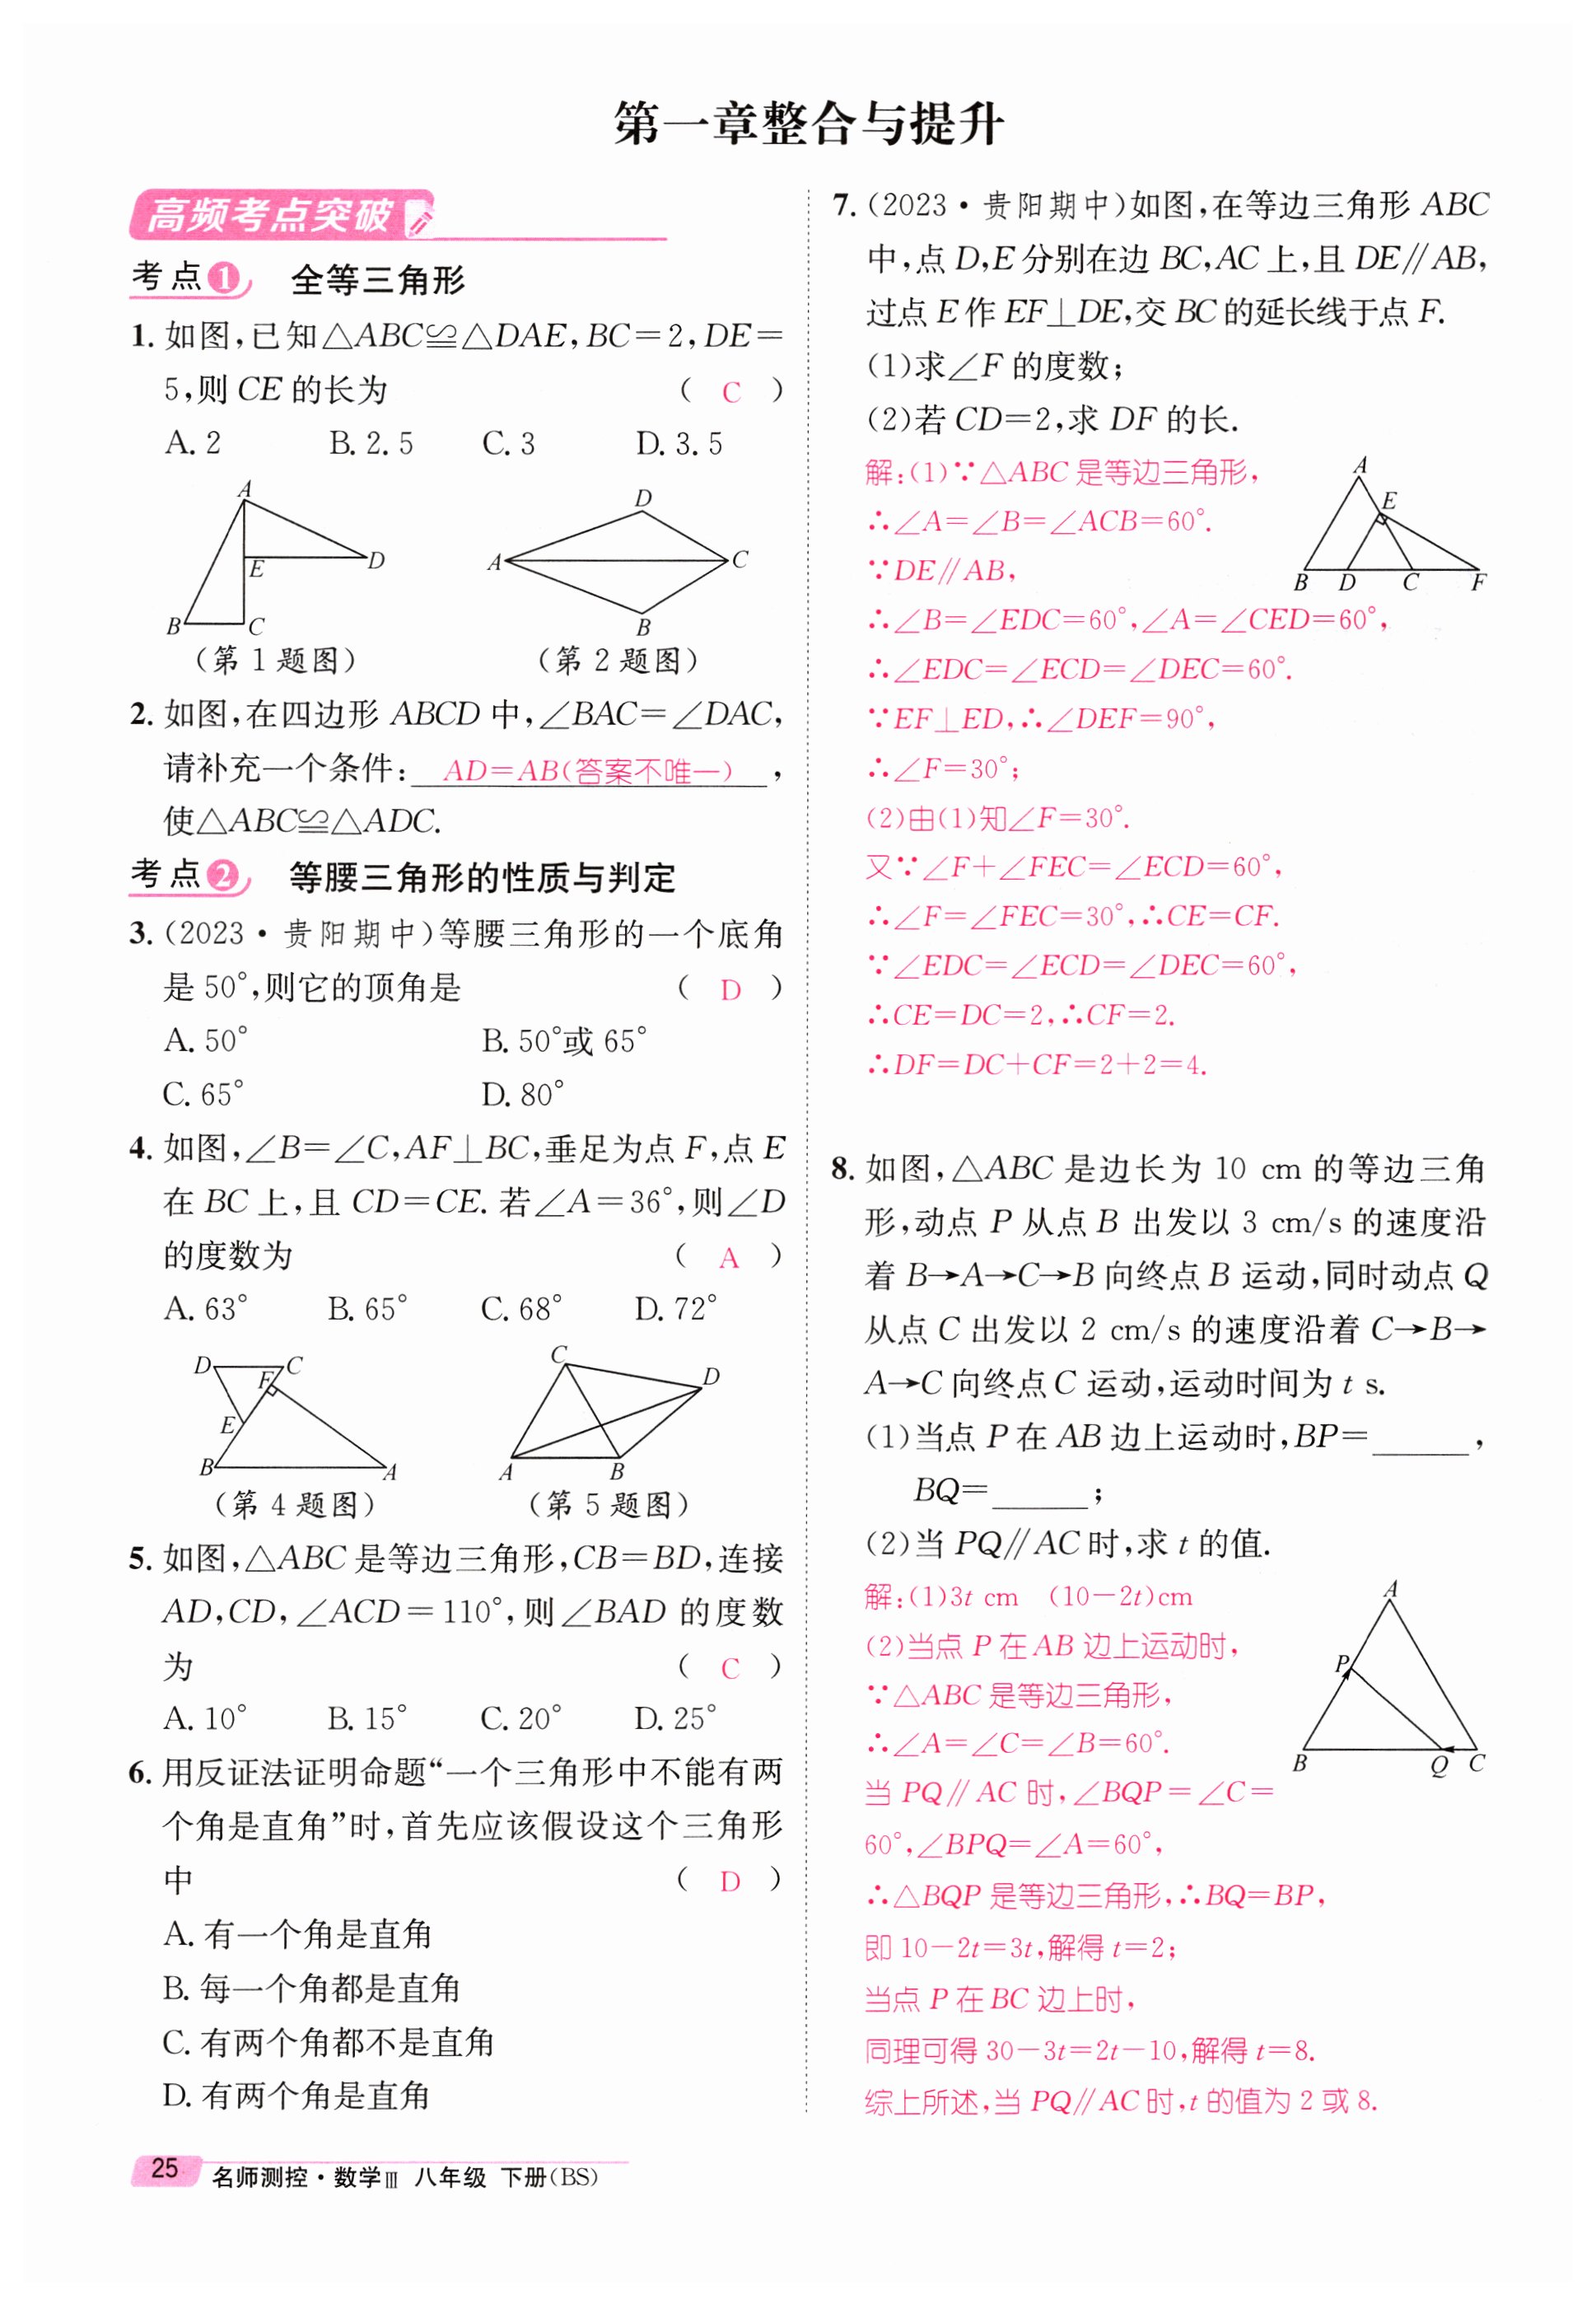 第一章整合与提升
高频考点突破
考点1 全等三角形
1. 如图,已知△ABC≌△DAE,BC=2,DE=
5,则 CE 的长为 ( C )
A. 2 B. 2.5 C. 3 D. 3.5
A
E
D
B
C
(第 1 题图)
D
A
C
B
(第 2 题图)
2. 如图,在四边形 ABCD 中,∠BAC=∠DAC,
请补充一个条件: AD=AB(答案不唯一) ,
使△ABC≌△ADC.
考点2 等腰三角形的性质与判定
3. (2023·贵阳期中)等腰三角形的一个底角
是 50°,则它的顶角是 ( D )
A. 50° B. 50°或 65°
C. 65° D. 80°
4. 如图,∠B=∠C,AF⊥BC,垂足为点 F,点 E
在 BC 上,且 CD=CE. 若∠A=36°,则∠D
的度数为 ( A )
A. 63° B. 65° C. 68° D. 72°
D
C
F
E
B
A
(第 4 题图)
C
D
A
B
(第 5 题图)
5. 如图,△ABC 是等边三角形,CB=BD,连接
AD,CD,∠ACD=110°,则∠BAD 的度数
为 ( C )
A. 10° B. 15° C. 20° D. 25°
6. 用反证法证明命题“一个三角形中不能有两
个角是直角”时,首先应该假设这个三角形
中 ( D )
A. 有一个角是直角
B. 每一个角都是直角
C. 有两个角都不是直角
D. 有两个角是直角
7. (2023·贵阳期中)如图,在等边三角形 ABC
中,点 D,E 分别在边 BC,AC 上,且 DE∥AB,
过点 E 作 EF⊥DE,交 BC 的延长线于点 F.
(1)求∠F 的度数;
(2)若 CD=2,求 DF 的长.
解:(1)∵△ABC 是等边三角形,
∴∠A=∠B=∠ACB=60°.
∵DE∥AB,
∴∠B=∠EDC=60°,∠A=∠CED=60°,
∴∠EDC=∠ECD=∠DEC=60°.
∵EF⊥ED,∴∠DEF=90°,
∴∠F=30°;
(2)由(1)知∠F=30°.
又∵∠F+∠FEC=∠ECD=60°,
∴∠F=∠FEC=30°,∴CE=CF.
∵∠EDC=∠ECD=∠DEC=60°,
∴CE=DC=2,∴CF=2.
∴DF=DC+CF=2+2=4.
A
E
B D C F
8. 如图,△ABC 是边长为 10 cm 的等边三角
形,动点 P 从点 B 出发以 3 cm/s 的速度沿
着 B→A→C→B 向终点 B 运动,同时动点 Q
从点 C 出发以 2 cm/s 的速度沿着 C→B→
A→C 向终点 C 运动,运动时间为 t s.
(1)当点 P 在 AB 边上运动时,BP=______,
BQ=______;
(2)当 PQ∥AC 时,求 t 的值.
解:(1)3t cm (10-2t)cm
(2)当点 P 在 AB 边上运动时,
∵△ABC 是等边三角形,
∴∠A=∠C=∠B=60°.
当 PQ∥AC 时,∠BQP=∠C=
60°,∠BPQ=∠A=60°,
∴△BQP 是等边三角形,∴BQ=BP,
即 10-2t=3t,解得 t=2;
当点 P 在 BC 边上时,
同理可得 30-3t=2t-10,解得 t=8.
综上所述,当 PQ∥AC 时,t 的值为 2 或 8.
A
P
B Q C
25 名师测控·数学Ⅲ 八年级 下册(BS)